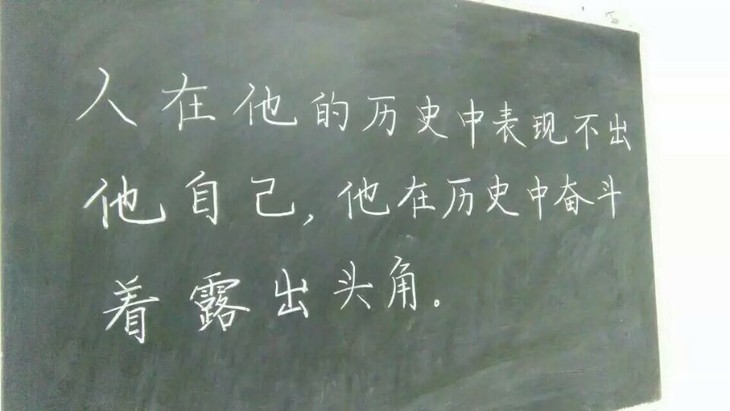 人在他的历史中表现不出
他自己,他在历史中奋斗
着露出头角。